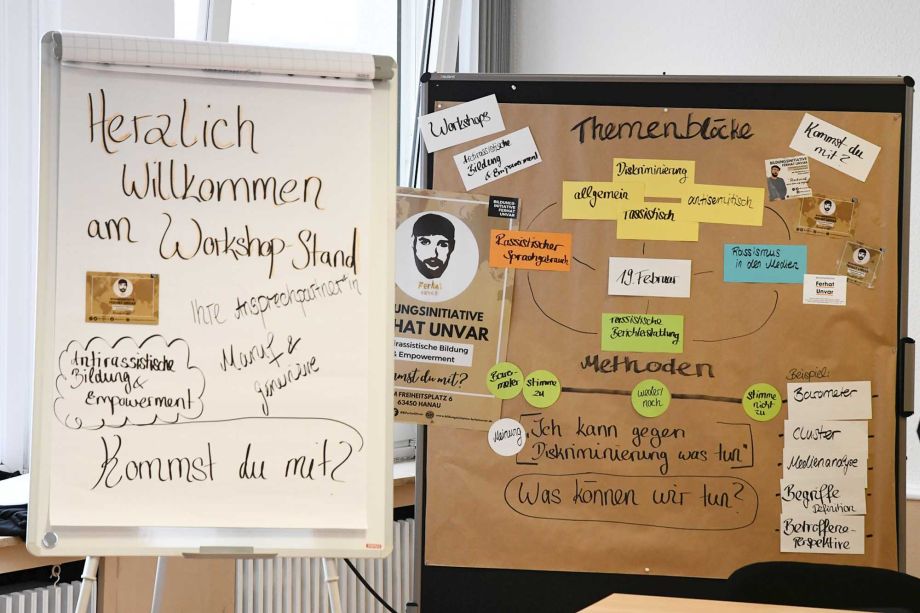 Herzlich
Willkommen
am Workshop-Stand
Ihre Ansprechpartner*in
Maruf &
Antirassistische
Bildung
&
Empowerment
Kommst du mit?
BILDUNGS
INITIATIVE
FERHAT
UNVAR
Ferhat
UNVAR
DUNGSINITIATIVE
HAT UNVAR
irassistische Bildung
& Empowerment
mst du mit?
M FREIHEITSPLATZ 6
63450 HANAU
Workshops
Antirassistische
Bildung
& Empowerment
Themenblöcke
Kommst du
mit?
BILDUNGSINITIATIVE
FERHAT UNVAR
Diskriminierung
allgemein
antisemitisch
rassistisch
Rassistischer
Sprachgebrauch
19. Februar
Rassismus
in den Medien
Ferhat
Unvar
rassistische
Berichterstattung
Methoden
Baro-
meter
Stimme
zu
weder/
noch
stimme
nicht
zu
Meinung
"Ich kann gegen
Diskriminierung was tun"
Was können wir tun?
Beispiel:
Barometer
Cluster
Medienanalyse
Begriffe
Definition
Betroffene-
perspektive